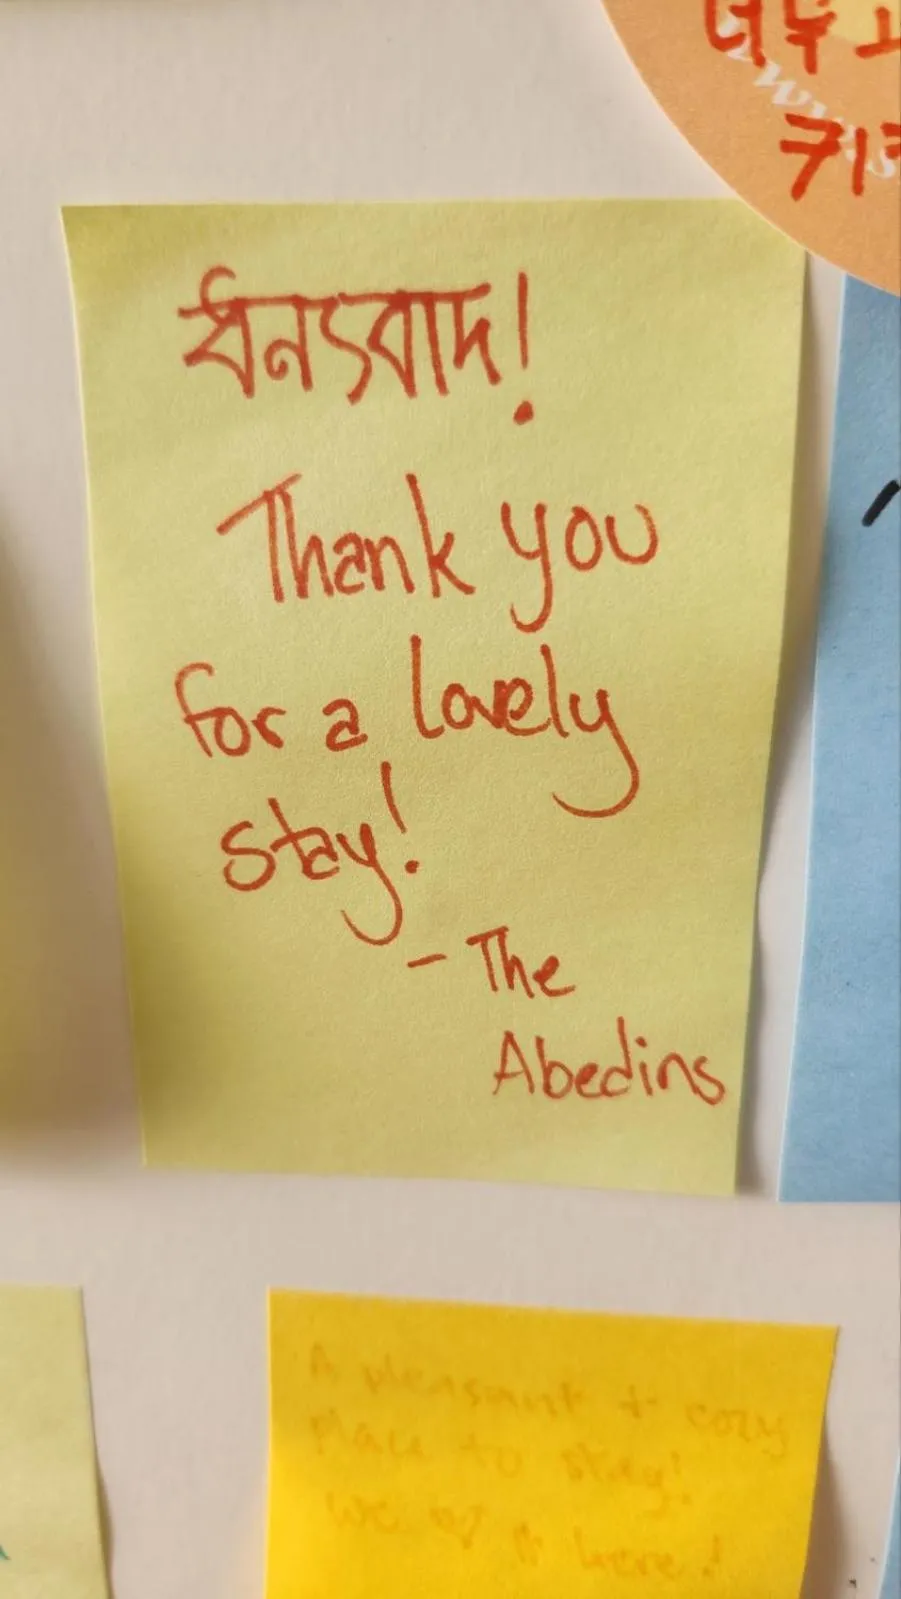 너무
ধন্যবাদ!
Thank you
for a lovely
stay!
- The
Abedins
A pleasant + cozy
place to stay!
here!